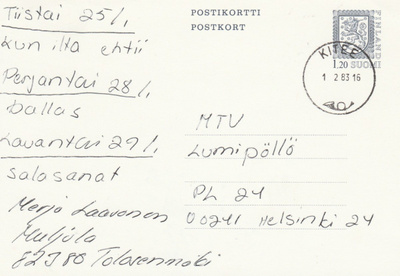 Tiistai 25/1,
kun ilta ehtii
Perjantai 28/1,
Dallas
Lauantai 29/1,
Salasanat
Merja Laavonen
82380 Tolosenmäki
POSTIKORTTI
POSTKORT
FINLAND
1,20 SUOMI
KITEE
1 2 83 16
MTV
Lumipöllö
PL 24
00241 Helsinki 24